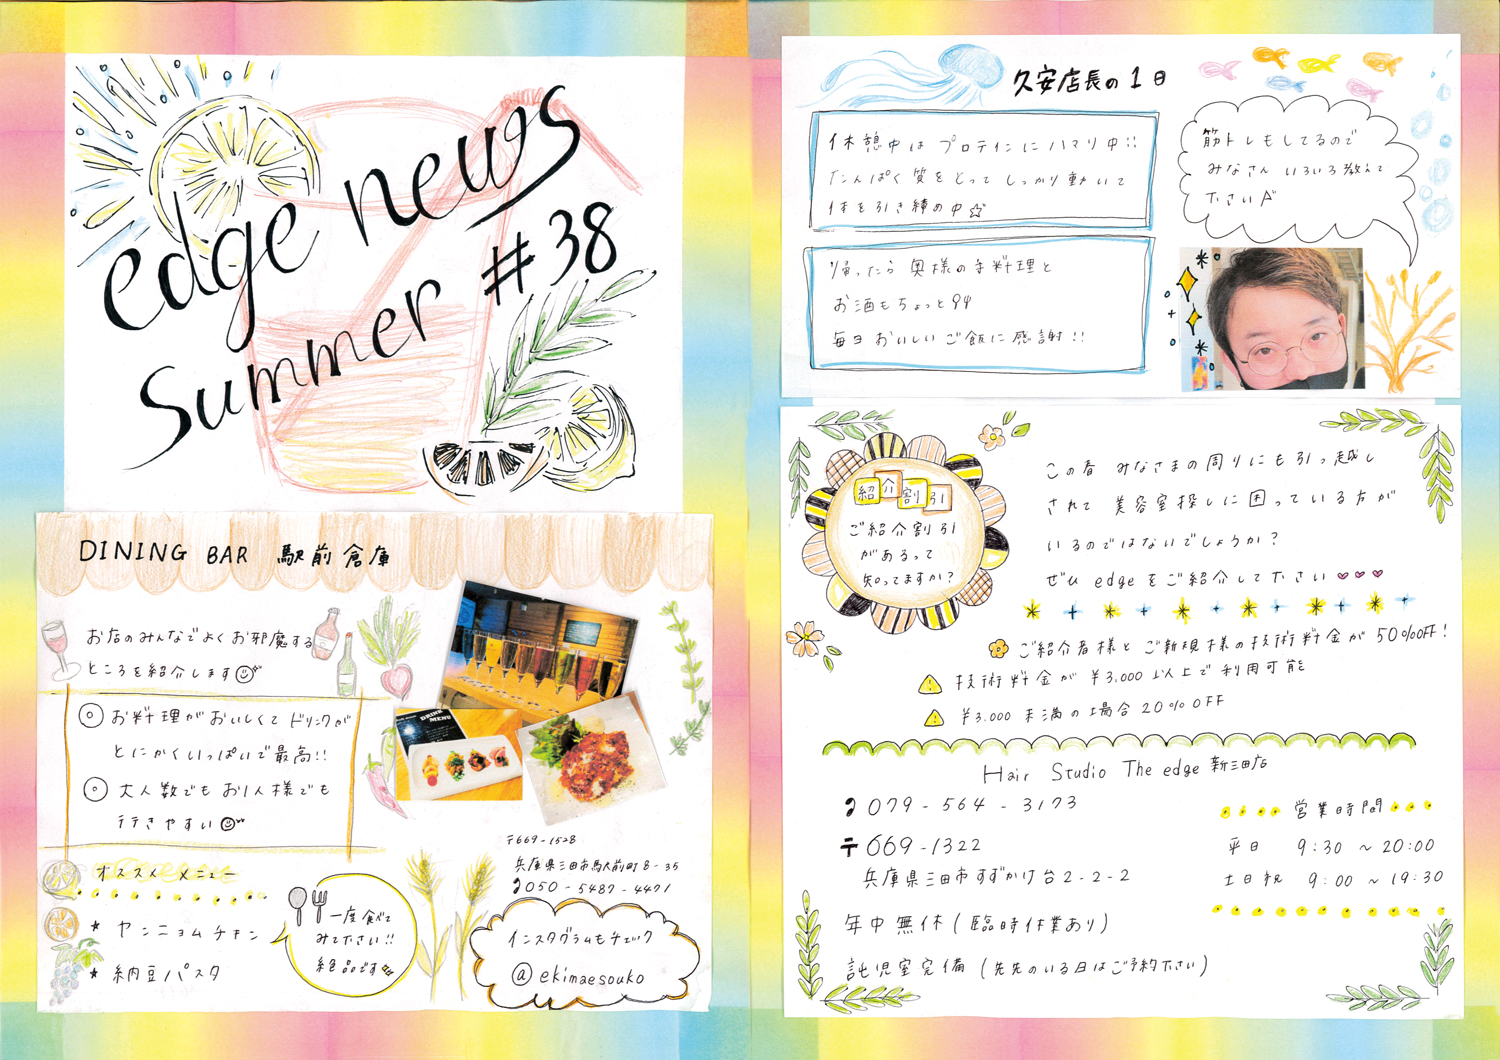 edge news
Summer #38
DINING BAR 駅前倉庫
お店のみんなでよくお邪魔する
ところを紹介します
◎ お料理がおいしくて ドリンクが
とにかくいっぱいで最高!!
◎ 大人数でもお1人様でも
行きやすい
オススメ メニュー
★ ヤンニョムチキン
★ 納豆パスタ
一度食べて
みて下さい!!
絶品です
DRINK
MENU
〒669-1528
兵庫県三田市駅前町8-35
050-5487-4471
インスタグラムもチェック
@ekimaesouko
久安店長の1日
休憩中は プロテインにハマり中!!
たんぱく質をとって しっかり動いて
体を引き締め中☆
帰ったら 奥様の手料理と
お酒もちょっと
毎日おいしいご飯に感謝!!
筋トレもしてるので
みなさん いろいろ教えて
下さい
紹介割引
ご紹介割引
があるって
知ってますか?
この春 みなさまの周りにも引っ越し
されて 美容室探しに困っている方が
いるのではないでしょうか?
ぜひ edgeをご紹介して下さい♡♡♡
ご紹介者様と ご新規様の技術料金が 50%OFF!
技術料金が ¥3,000以上で利用可能
¥3,000未満の場合20%OFF
Hair Studio The edge 新三田店
079-564-3173
〒669-1322
兵庫県三田市すずかけ台2-2-2
年中無休(臨時休業あり)
託児室完備 (先先のいる日はご予約下さい)
営業時間
平日 9:30 ~ 20:00
土日祝 9:00 ~ 19:30